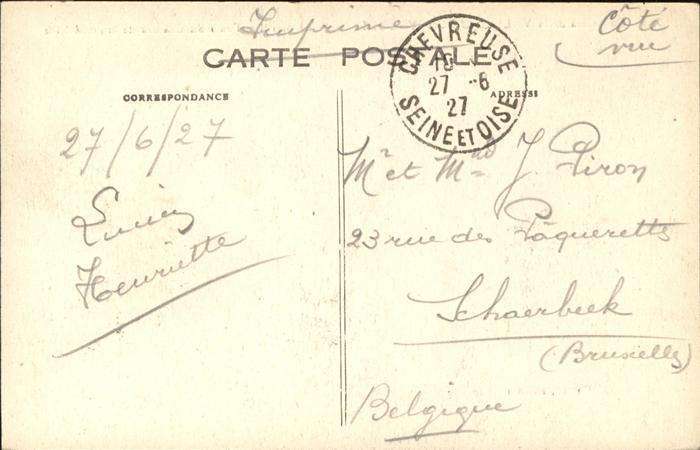 Imprimé
Côté
vue
CARTE POSTALE
CHEVREUSE
27 -6
27
SEINE ET OISE
CORRESPONDANCE
ADRESSE
27/6/27
Lucien
Henriette
Mr et Mme J. Piron
23 rue des Pâquerettes
Schaerbeek
(Bruxelles)
Belgique